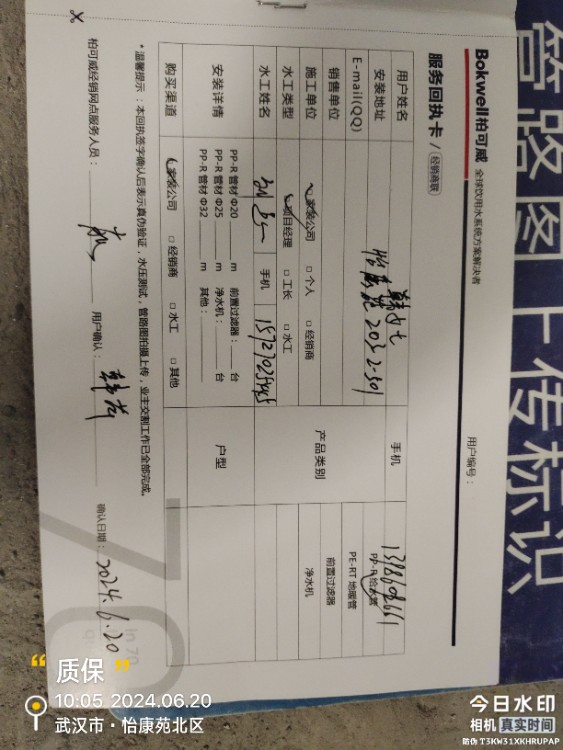 Bokwell柏可威 全球饮用水系统方案解决者
服务回执卡/(经销商联)
用户编号：
用户姓名 韩女士 手机
安装地址 怡康苑 203-2-501
E-mail(QQ)
销售单位 产品类别 PP-R 给水管
PE-RT 地暖管
前置过滤器
净水机
施工单位 家装公司 □ 个人 □ 经销商
水工类型 项目经理 □ 工长 □ 水工
水工姓名 手机
安装详情 PP-R 管材 Φ20 m 前置过滤器： 台
PP-R 管材 Φ25 m 净水机： 台
PP-R 管材 Φ32 m 其他：
户型
购买渠道 家装公司 □ 经销商 □ 水工 □ 其他
*温馨提示：本回执签字确认后表示真伪验证，水压测试，管路图拍摄上传，业主交割工作已全部完成。
柏可威经销网点服务人员： 用户确认： 确认日期：2024.6.20
管路图上传标识
质保
10:05 2024.06.20
武汉市·怡康苑北区
今日水印
相机 真实时间
防伪 T3KW31XKHRUPAP